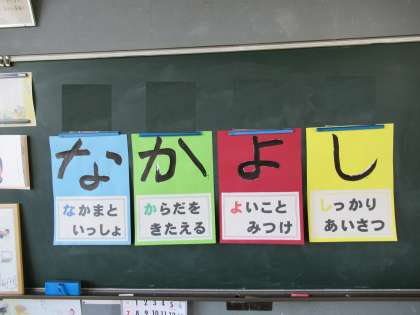 な
なかまと
いっしょ
か
からだを
きたえる
よ
よいこと
みつけ
し
しっかり
あいさつ